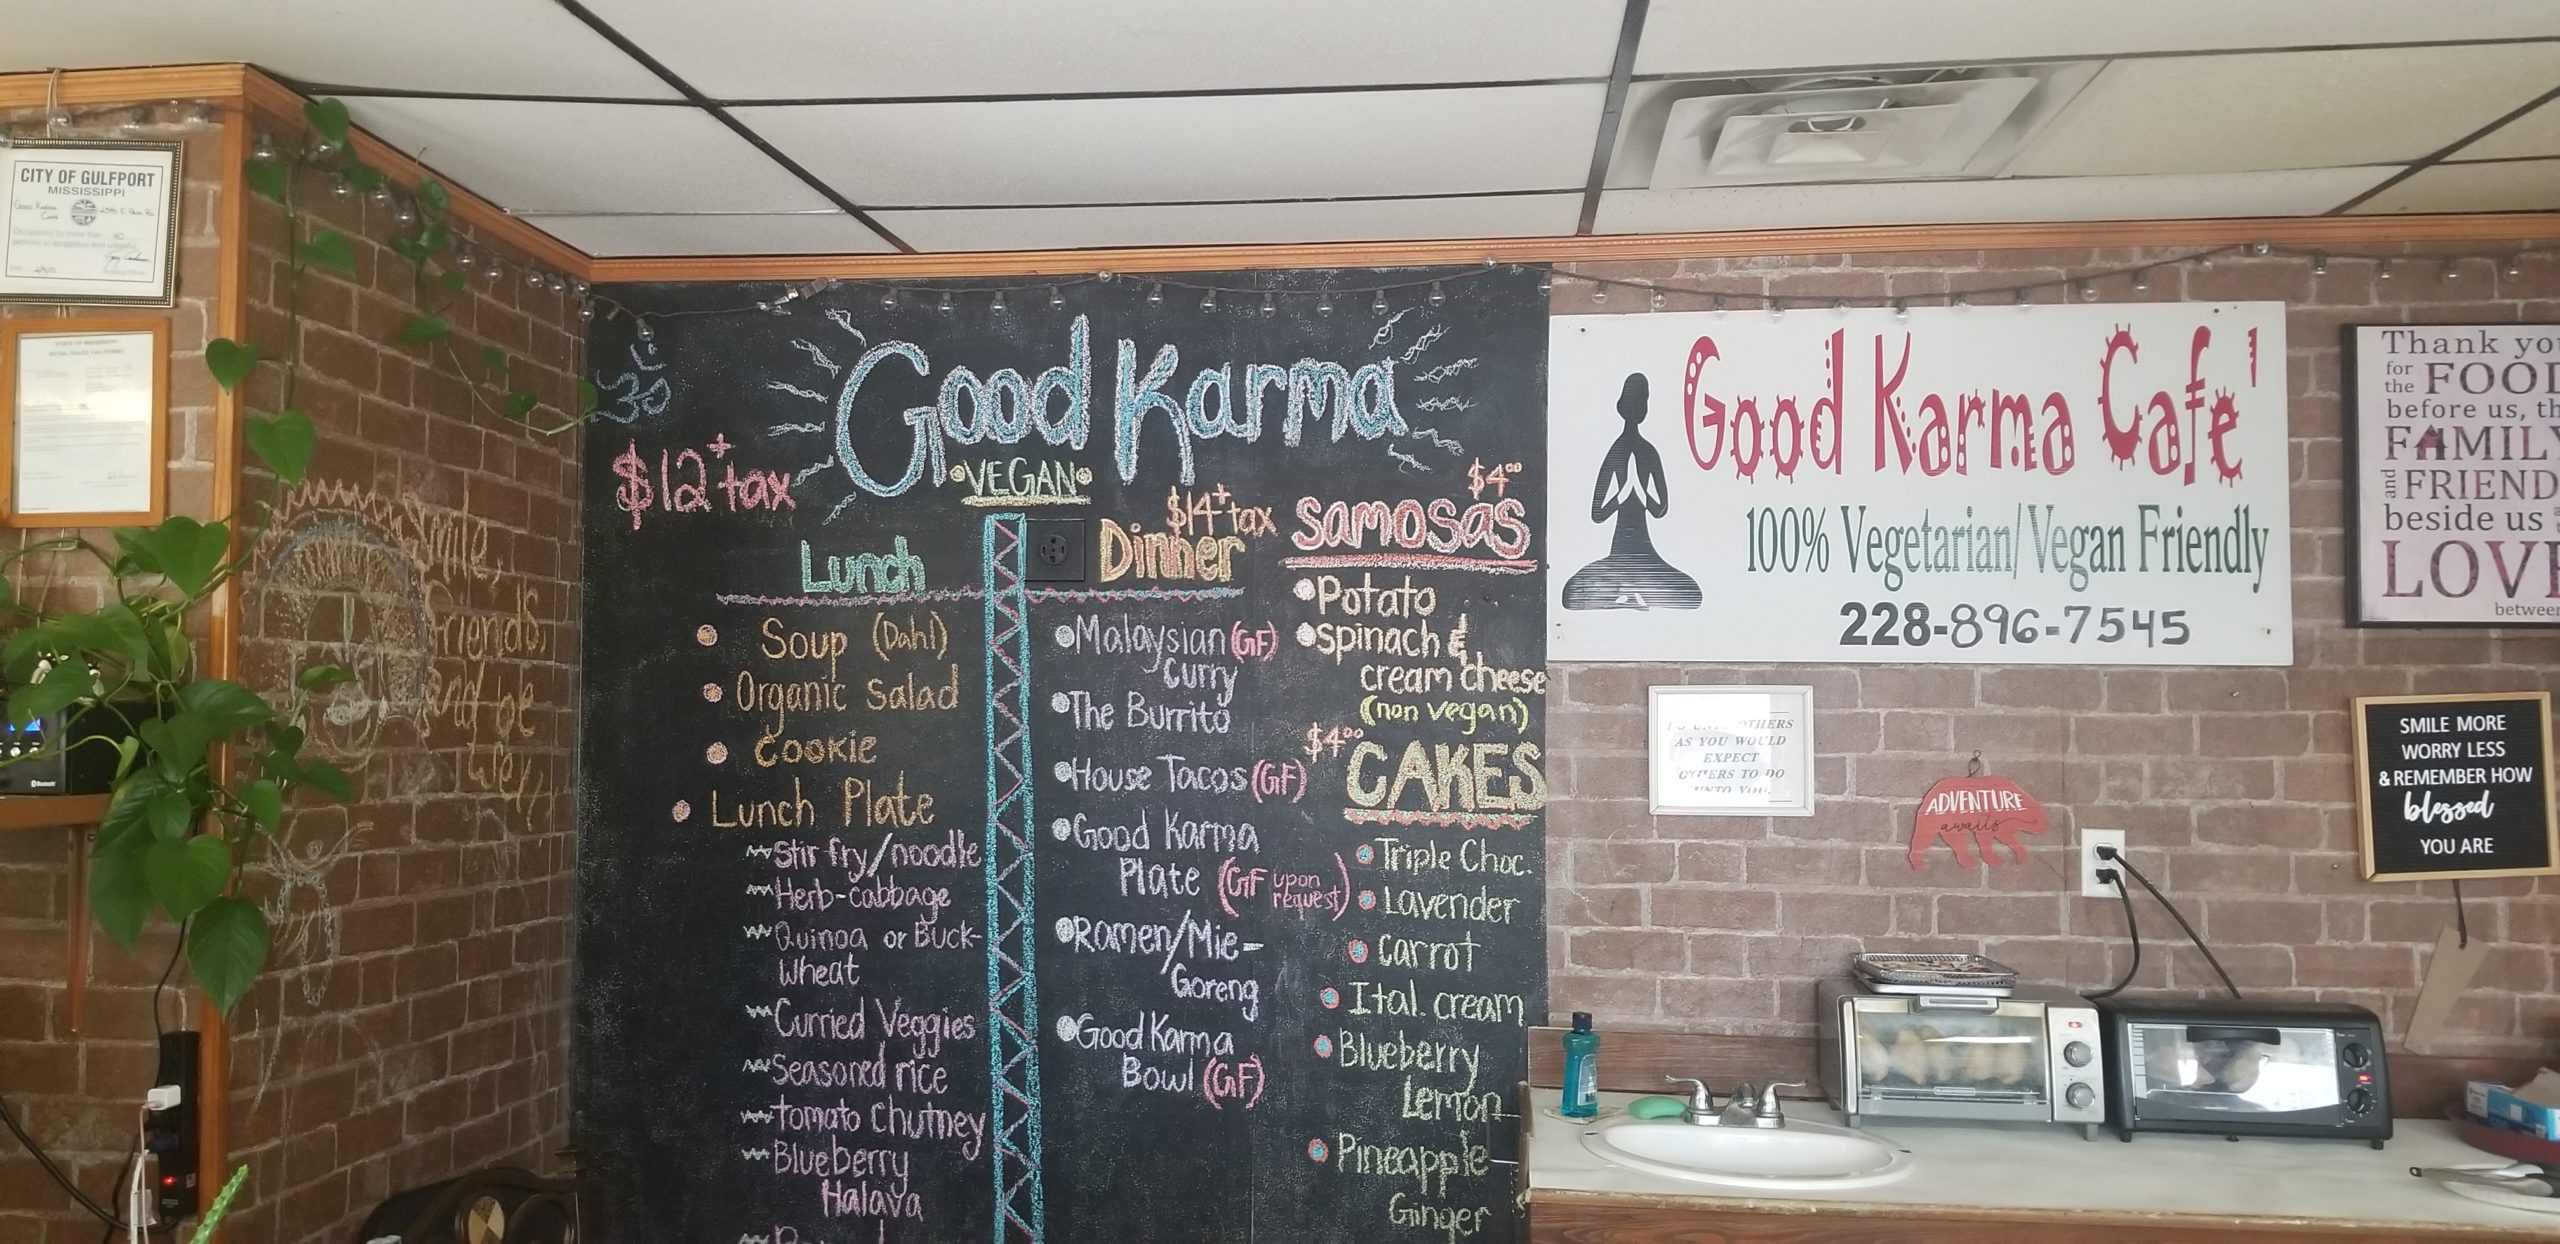 CITY OF GULFPORT
MISSISSIPPI
GOOD KARMA
CAFE
Occupancy by more than 40
persons is dangerous and unlawful
STATE OF MISSISSIPPI
RETAIL SALES TAX PERMIT
Smile,
Friends,
and be
Well,
ॐ
Good Karma
•VEGAN•
$12+tax
Lunch
Soup (Dahl)
Organic Salad
Cookie
Lunch Plate
Stir fry/noodle
Herb-cabbage
Quinoa or Buck-
wheat
Curried Veggies
Seasoned rice
Tomato Chutney
Blueberry
Halava
$14+tax
Dinner
Malaysian (GF)
Curry
The Burrito
House Tacos (GF)
Good Karma
Plate (GF upon
request)
Ramen/Mie-
Goreng
Good Karma
Bowl (GF)
$4.00
Samosas
Potato
Spinach &
cream cheese
(non vegan)
$4.00
CAKES
Triple Choc.
Lavender
Carrot
Ital. cream
Blueberry
Lemon
Pineapple
Ginger
Good Karma Cafe'
100% Vegetarian/Vegan Friendly
228-896-7545
OTHERS
AS YOU WOULD
EXPECT
OTHERS TO DO
UNTO YOU.
ADVENTURE
awaits
Thank you
for the FOOD
before us, the
FAMILY
and FRIENDS
beside us
LOVE
between
SMILE MORE
WORRY LESS
& REMEMBER HOW
blessed
YOU ARE